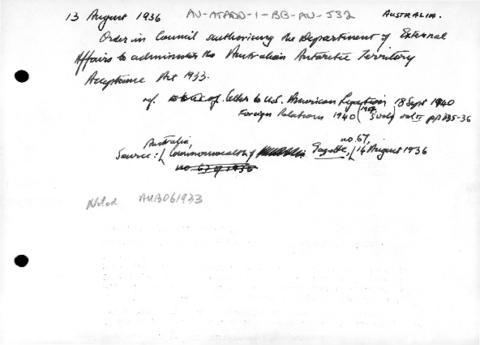 13 August 1936 AU-ATADD-1-BB-AU-532 AUSTRALIA.
Order in Council authorising the Department of External
Affairs to administer the Australian Antarctic Territory
Acceptance Act 1933.
ref. letter to U.S. American Legation 18 Sept 1940
Foreign Relations 1940 vol II pp 335-36
Australia, no. 67,
Source: Commonwealth Gazette, 14 August 1936
no. 67 of 1936
Noted AUB061933